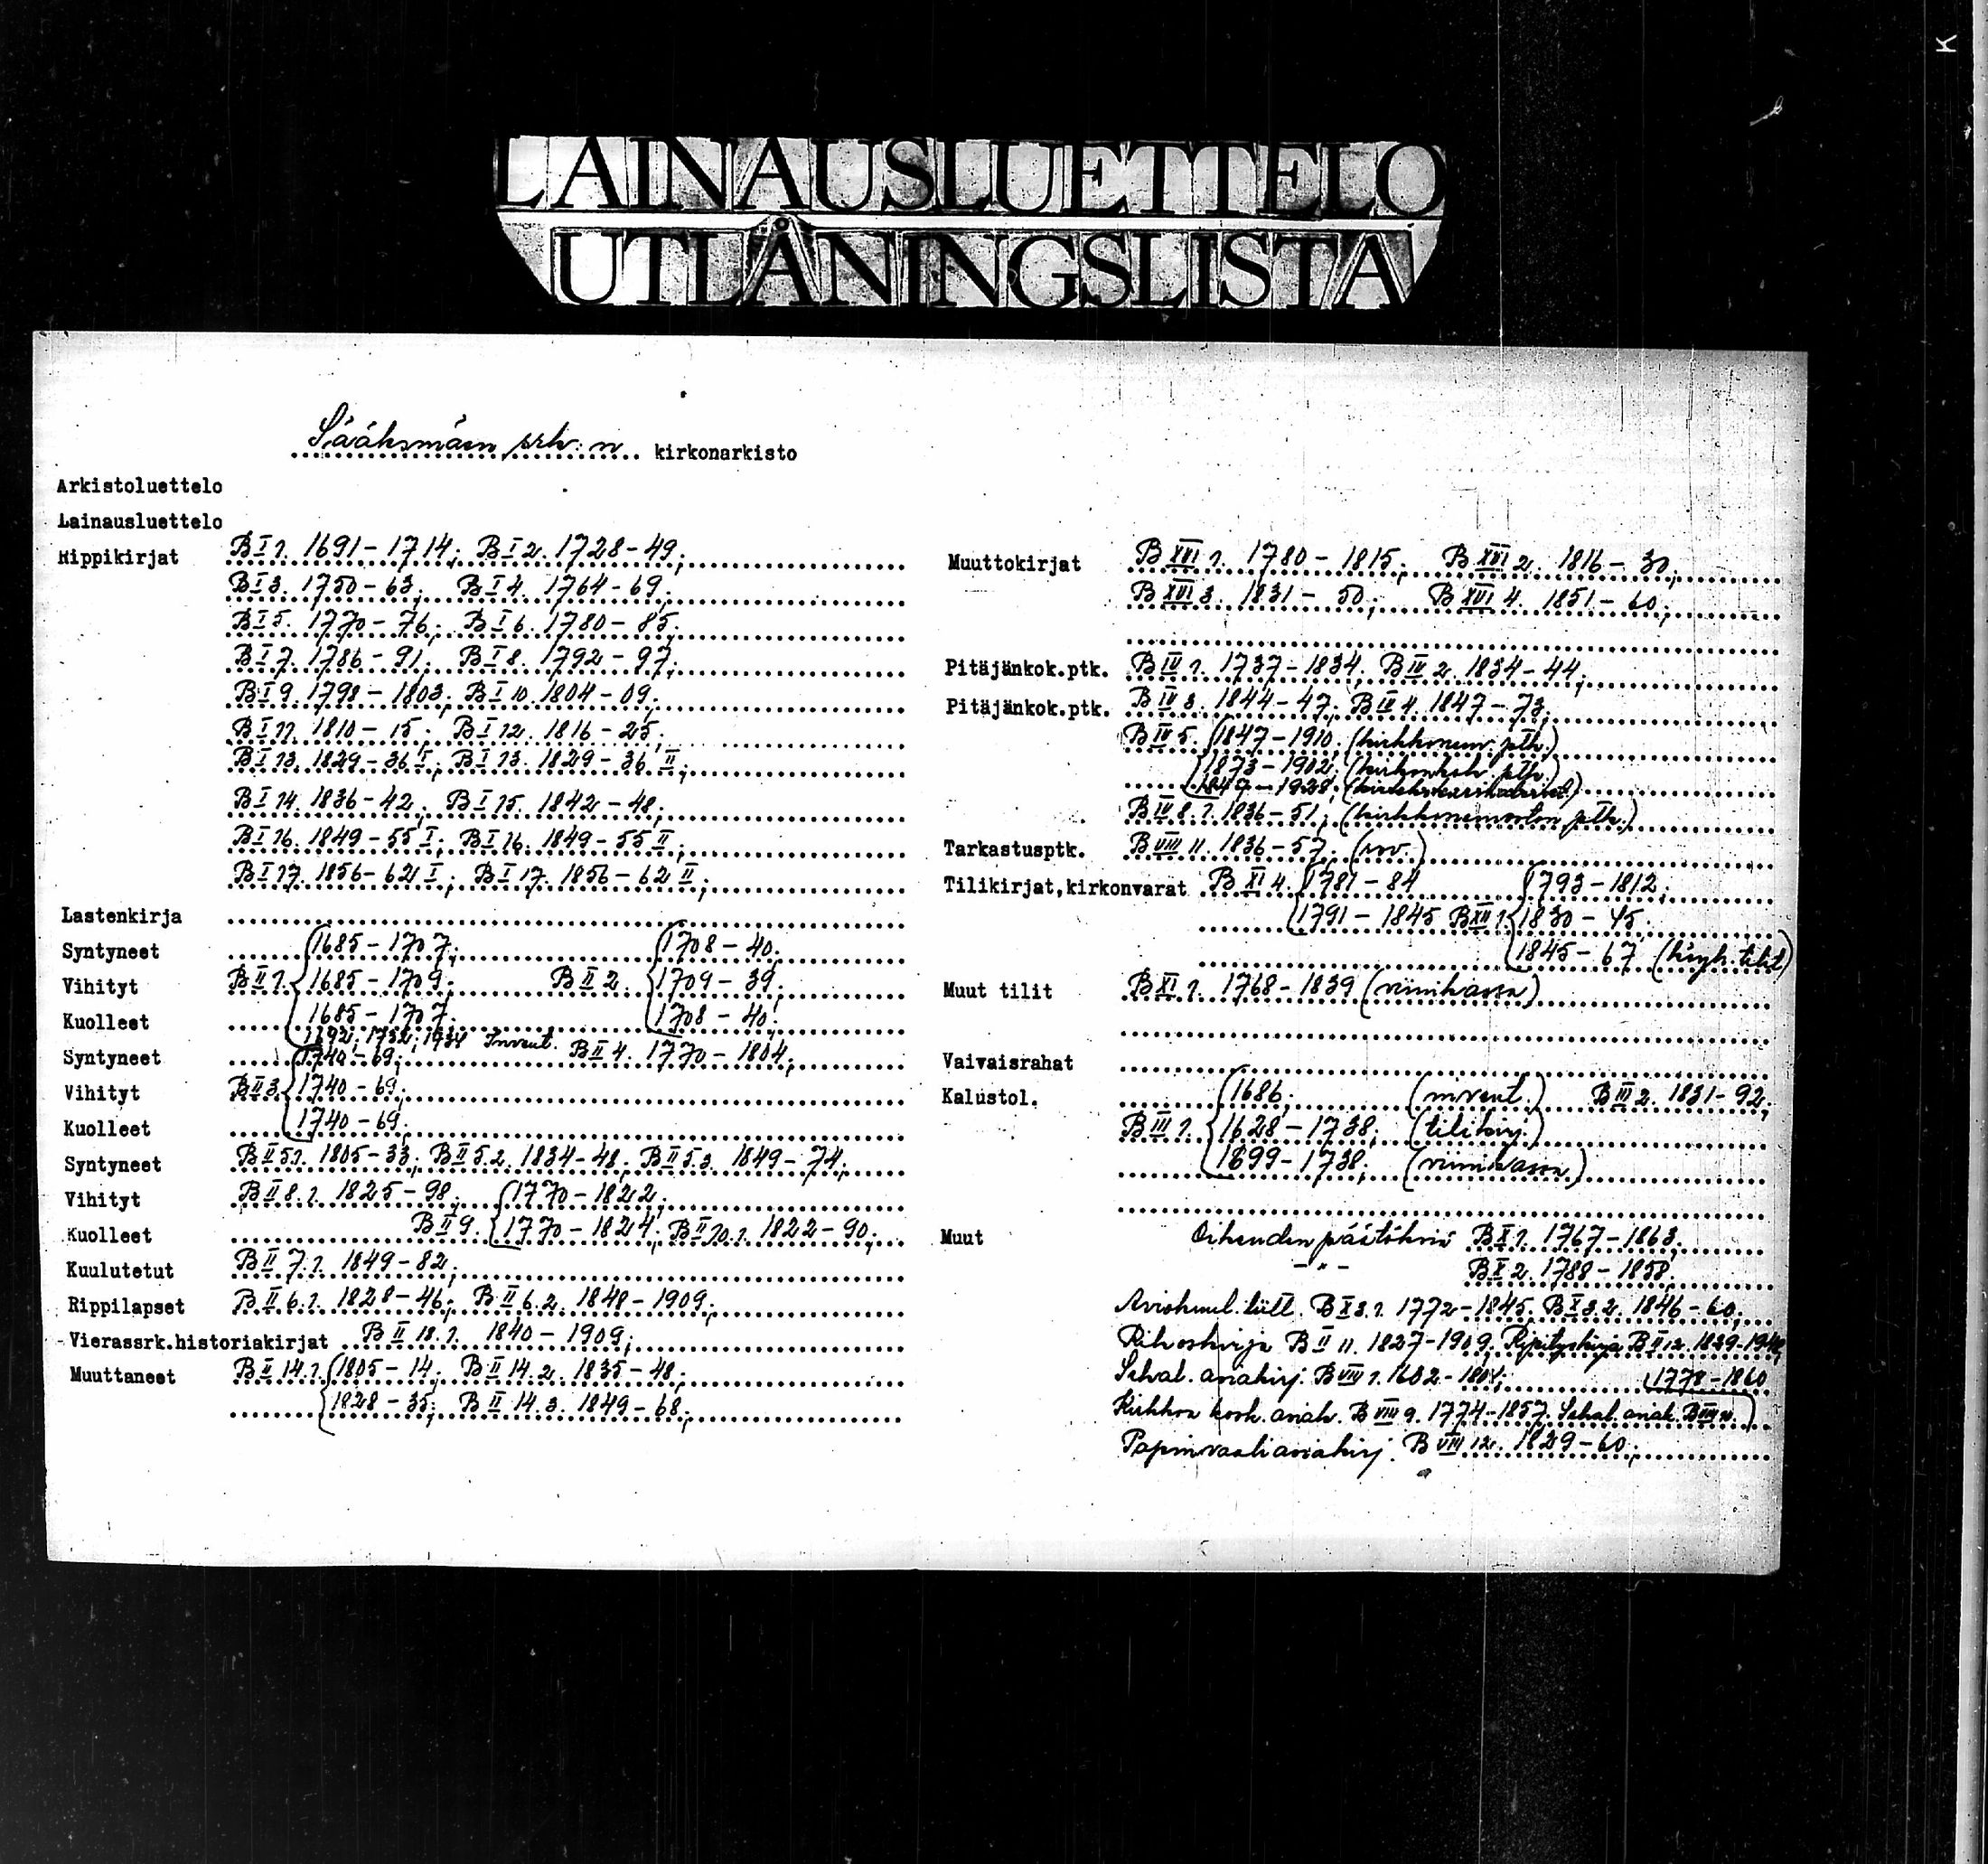 K
LAINAUSLUETTELO
UTLÅNINGSLISTA
Sääksmäen srk:n kirkonarkisto
Arkistoluettelo
Lainausluettelo
Rippikirjat B I 1. 1691-1714; B I 2. 1728-49;
B I 3. 1750-63; B I 4. 1764-69;
B I 5. 1770-76; B I 6. 1780-85;
B I 7. 1786-91; B I 8. 1792-97;
B I 9. 1798-1803; B I 10. 1804-09;
B I 11. 1810-15; B I 12. 1816-25;
B I 13. 1829-36 I; B I 13. 1829-36 II;
B I 14. 1836-42; B I 15. 1842-48;
B I 16. 1849-55 I; B I 16. 1849-55 II;
B I 17. 1856-62 I; B I 17. 1856-62 II;
Lastenkirja
Syntyneet 1685-1707; 1708-40;
Vihityt B II 1. 1685-1709; B II 2. 1709-39;
Kuolleet 1685-1707; 1708-40;
1692; 1732; 1934 Invent.
Syntyneet 1740-69; B II 4. 1770-1804;
Vihityt B II 3. 1740-69;
Kuolleet 1740-69;
Syntyneet B II 5.1. 1805-33; B II 5.2. 1834-48; B II 5.3. 1849-74;
Vihityt B II 8.1. 1825-98; 1770-1822;
Kuolleet B II 9. 1770-1824; B II 10.1. 1822-90;
Kuulutetut B II 7.1. 1849-82;
Rippilapset B II 6.1. 1828-46; B II 6.2. 1848-1909;
Vierassrk.historiakirjat B II 18.1. 1840-1909;
Muuttaneet B II 14.1. 1805-14; B II 14.2. 1835-48;
1828-35; B II 14.3. 1849-68;
Muuttokirjat B XVI 1. 1780-1815; B XVI 2. 1816-30;
B XVI 3. 1831-50; B XVI 4. 1851-60;
Pitäjänkok.ptk. B IV 1. 1737-1834; B IV 2. 1834-44;
Pitäjänkok.ptk. B IV 3. 1844-47; B IV 4. 1847-73;
B IV 5. 1847-1910; (kirkkoneuv. ptk.)
1873-1902; (kirkonkok. ptk.)
B IV 8.1. 1836-51; (kirkkoneuvoston ptk.)
Tarkastusptk. B VIII 11. 1836-57; (rov.)
Tilikirjat,kirkonvarat B XI 4. 1781-84 1793-1812;
1791-1845 B XII 1. 1830-45.
1845-67 (köyh. tilit)
Muut tilit B XI 1. 1768-1839 (viinikassa)
Vaivaisrahat
Kalustol. 1686; (invent.) B III 2. 1831-92;
B III 1. 1628-1738; (tilikirj.)
1699-1738; (viinikassa)
Muut Oikeuden päätöksiä B X 1. 1767-1863;
-"- B X 2. 1788-1858;
Aviokuul. tull. B X 3.1. 1772-1845; B X 3.2. 1846-60;
Rikoskirja B II 11. 1827-1909; B II 12. 1829-1942;
Sekal. asiakirj. B VIII 1. 1602-1804; 1778-1860
Kirkkoa kosk. asiak. B VIII 9. 1774-1857. Sekal. asiak.
Papinvaaliasiakirj. B VIII 12. 1829-60;